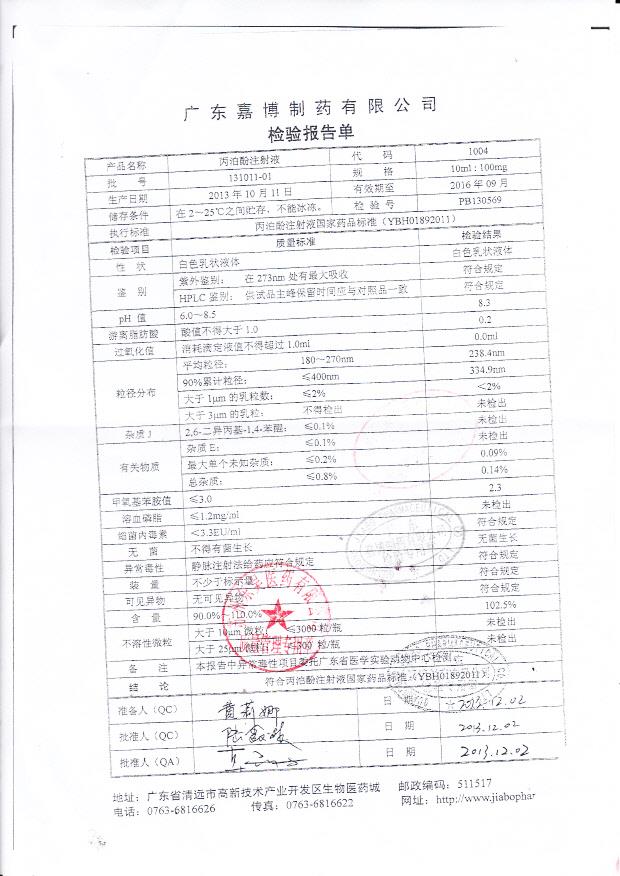 广东嘉博制药有限公司
检验报告单
产品名称 丙泊酚注射液 代 码 1004
批 号 131011-01 规 格 10ml:100mg
生产日期 2013年10月11日 有效期至 2016年09月
储存条件 在2~25℃之间贮存，不能冰冻。 检验号 PB130569
执行标准 丙泊酚注射液国家药品标准（YBH01892011）
检验项目 质量标准 检验结果
性 状 白色乳状液体 白色乳状液体
鉴 别 紫外鉴别： 在273nm处有最大吸收 符合规定
HPLC鉴别： 供试品主峰保留时间应与对照品一致 符合规定
pH 值 6.0~8.5 8.3
游离脂肪酸 酸值不得大于1.0 0.2
过氧化值 消耗滴定液值不得超过1.0ml 0.0ml
粒径分布 平均粒径： 180~270nm 238.4nm
90%累计粒径： ≤400nm 334.9nm
大于1μm的乳粒数： ≤2% <2%
大于3μm的乳粒： 不得检出 未检出
杂质J 2,6-二异丙基-1,4-苯醌： ≤0.1% 未检出
有关物质 杂质E： ≤0.1% 未检出
最大单个未知杂质： ≤0.2% 0.09%
总杂质： ≤0.8% 0.14%
甲氧基苯胺值 ≤3.0 2.3
溶血磷脂 ≤1.2mg/ml 未检出
细菌内毒素 <3.3EU/ml 符合规定
无 菌 不得有菌生长 无菌生长
异常毒性 静脉注射法给药应符合规定 符合规定
装 量 不少于标示量 符合规定
可见异物 无可见异物 符合规定
含 量 90.0%~110.0% 102.5%
不溶性微粒 大于10μm微粒： ≤3000粒/瓶 未检出
大于25μm微粒： 300粒/瓶 未检出
备 注 本报告中异常毒性项目委托广东省医学实验动物中心检测。
结 论 符合丙泊酚注射液国家药品标准（YBH01892011）
准备人（QC） 黄莉娜 日 期 2013.12.02
批准人（QC） 日 期 2013.12.02
批准人（QA） 日 期 2013.12.02
地址：广东省清远市高新技术产业开发区生物医药城 邮政编码：511517
电话：0763-6816626 传真：0763-6816622 网址：http://www.jiabophar